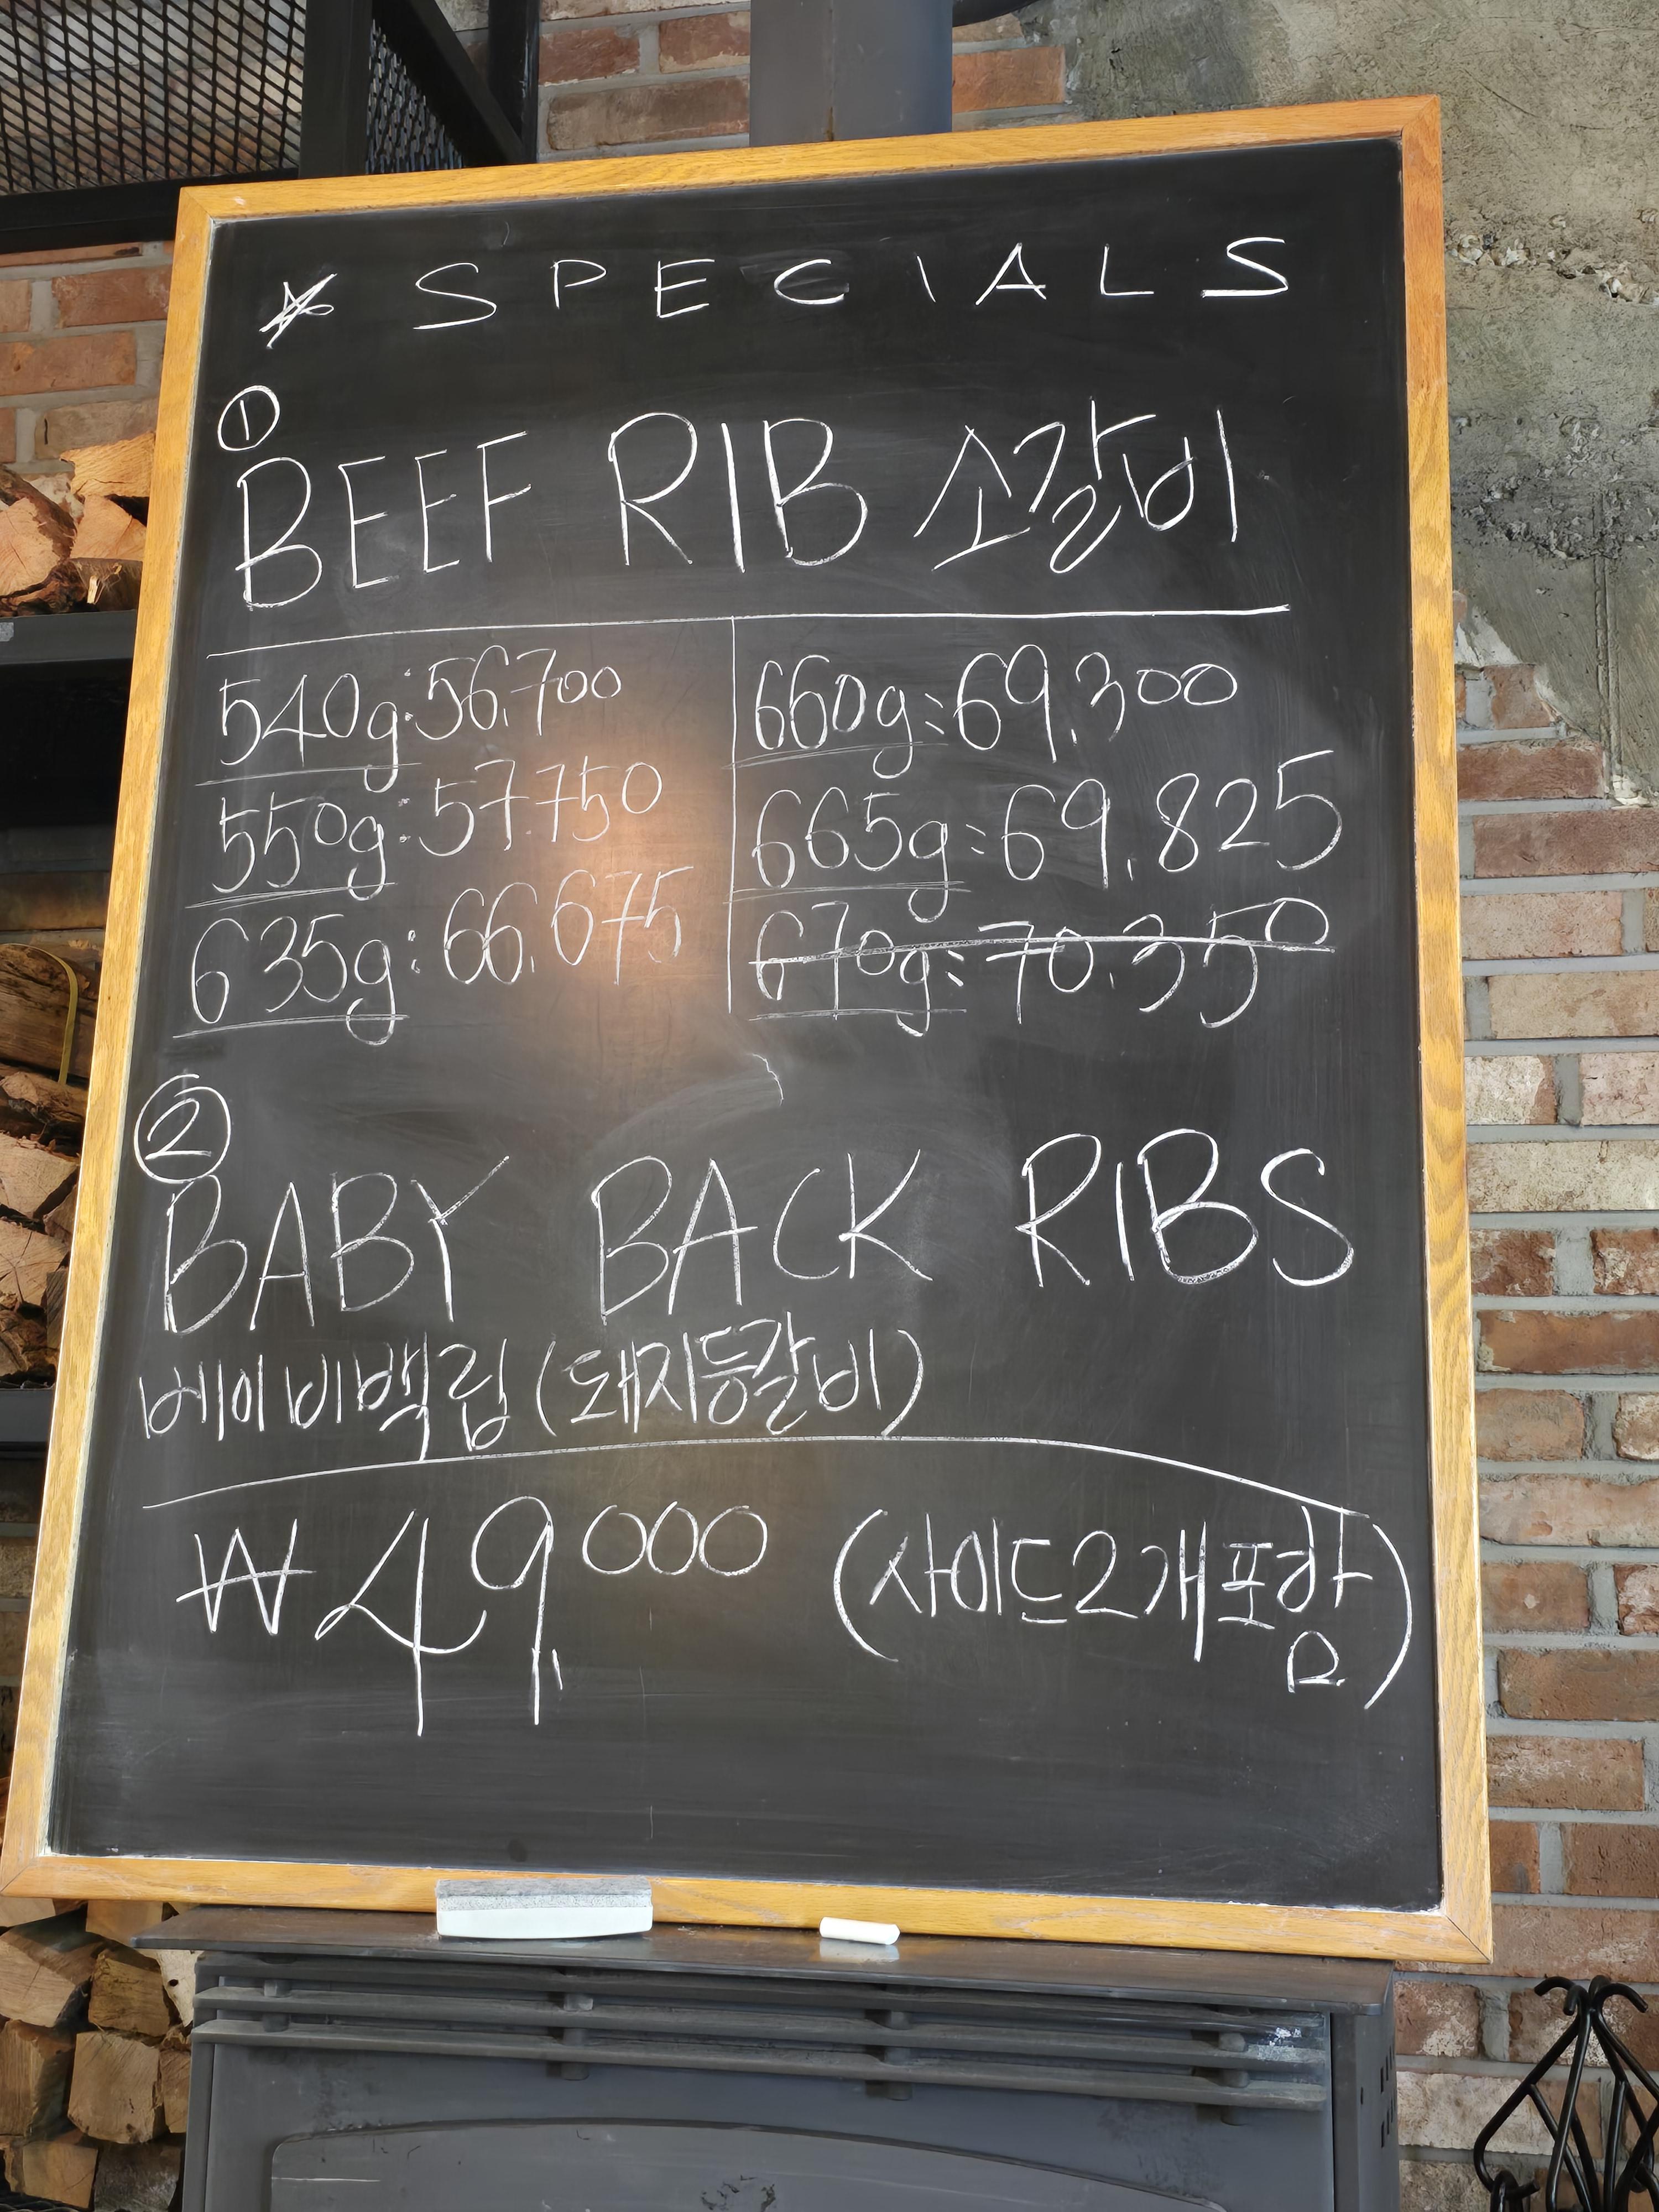 ☆ SPECIALS
①
BEEF RIB 소갈비
540g: 56.700
550g: 57.750
635g: 66.675
660g: 69.300
665g: 69.825
670g: 70.350
②
BABY BACK RIBS
베이비백립 (돼지등갈비)
₩49,000 (사이드2개포함)